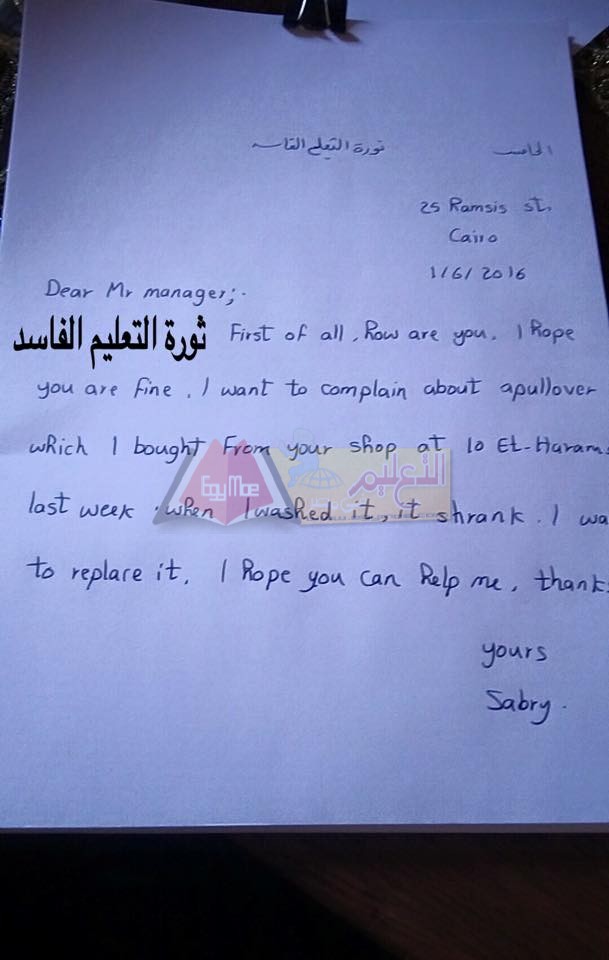 ثورة التعليم الفاسد
25 Ramsis st.
Cairo
1/6/2016
Dear Mr manager;.
ثورة التعليم الفاسد
First of all, How are you. I hope
you are fine. I want to complain about apullover
which I bought from your shop at 10 El-Haram
last week. when I washed it, it shrank. I
to replace it. I hope you can help me,
yours
Sabry.
EgyMoe
التعليم